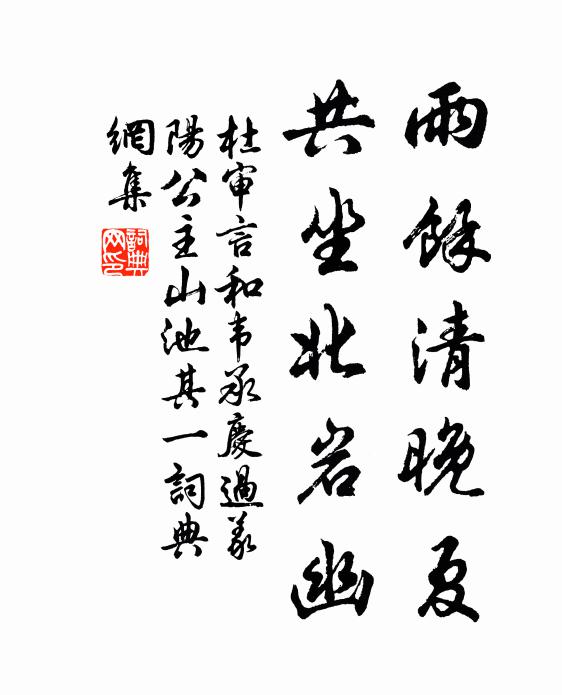 雨餘清晚夏
共坐北岩幽
杜审言和韦承慶過義
陽公主山池其一詞典
網集
詞典網印